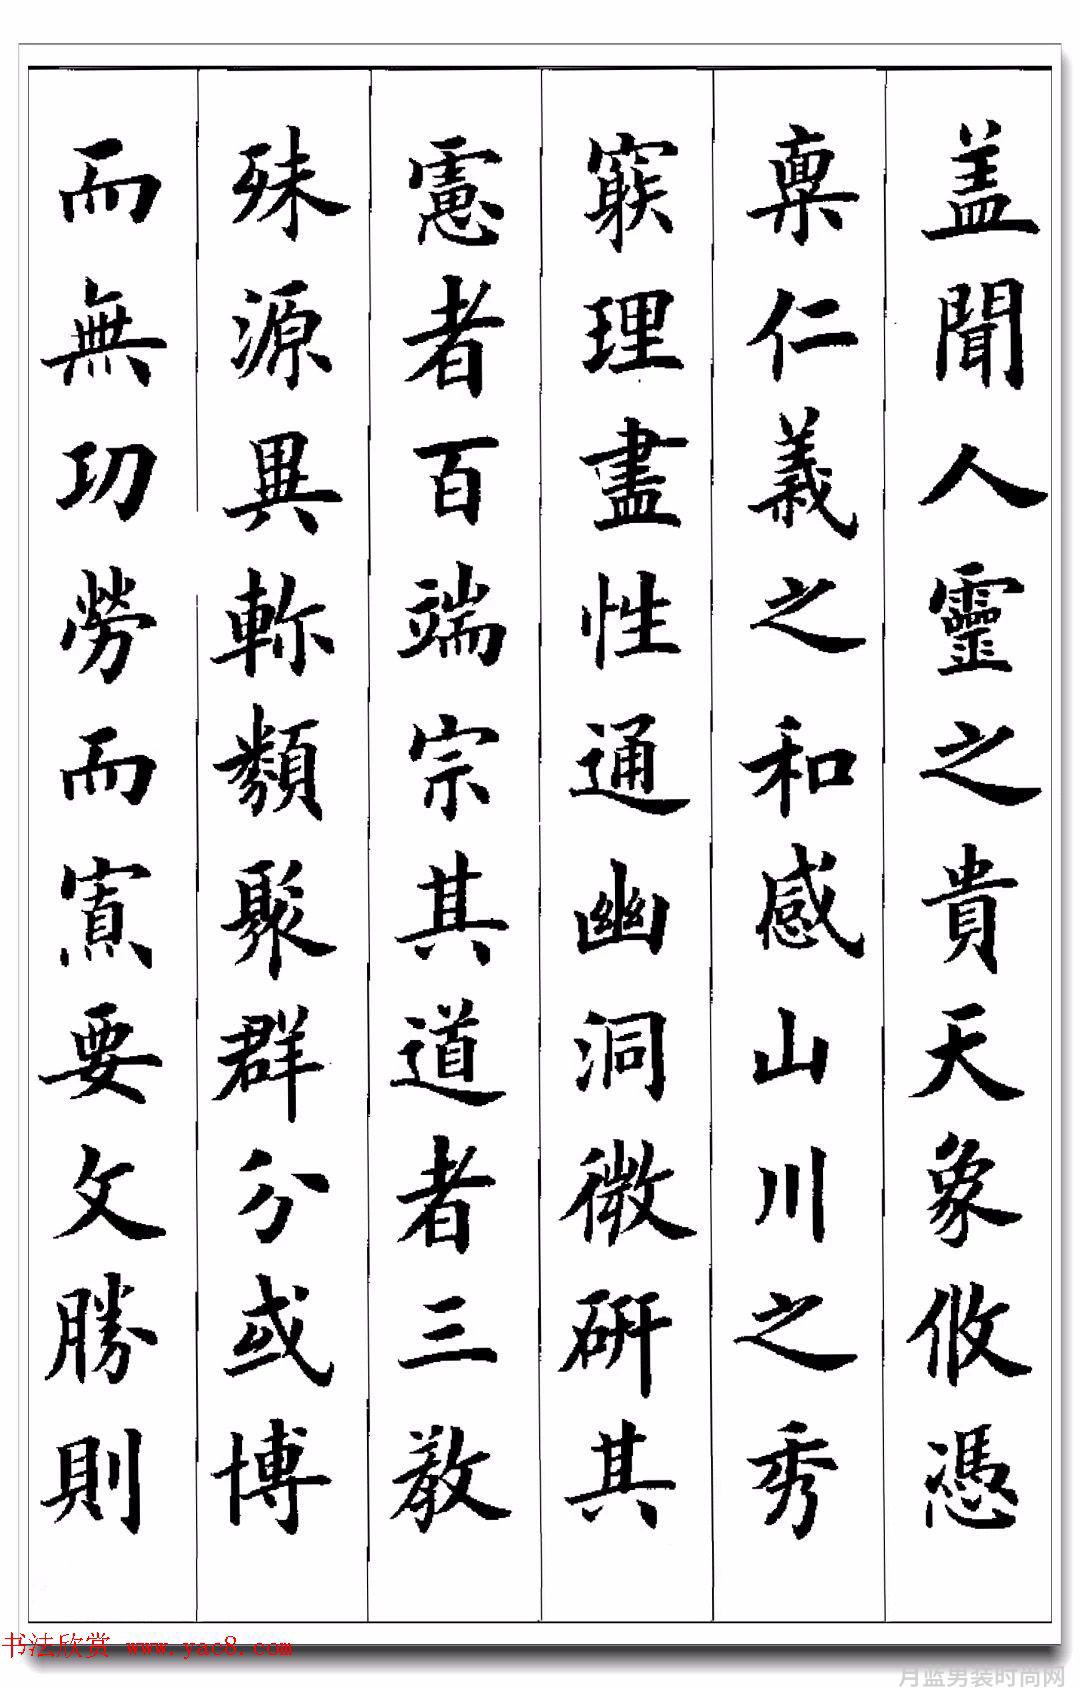 盖聞人靈之貴天象攸憑
稟仁義之和感山川之秀
窮理盡性通幽洞微研其
慮者百端宗其道者三教
殊源異軫類聚群分或博
而無功勞而寡要文勝則
书法欣赏 www.yac8.com
月蓝男装时尚网